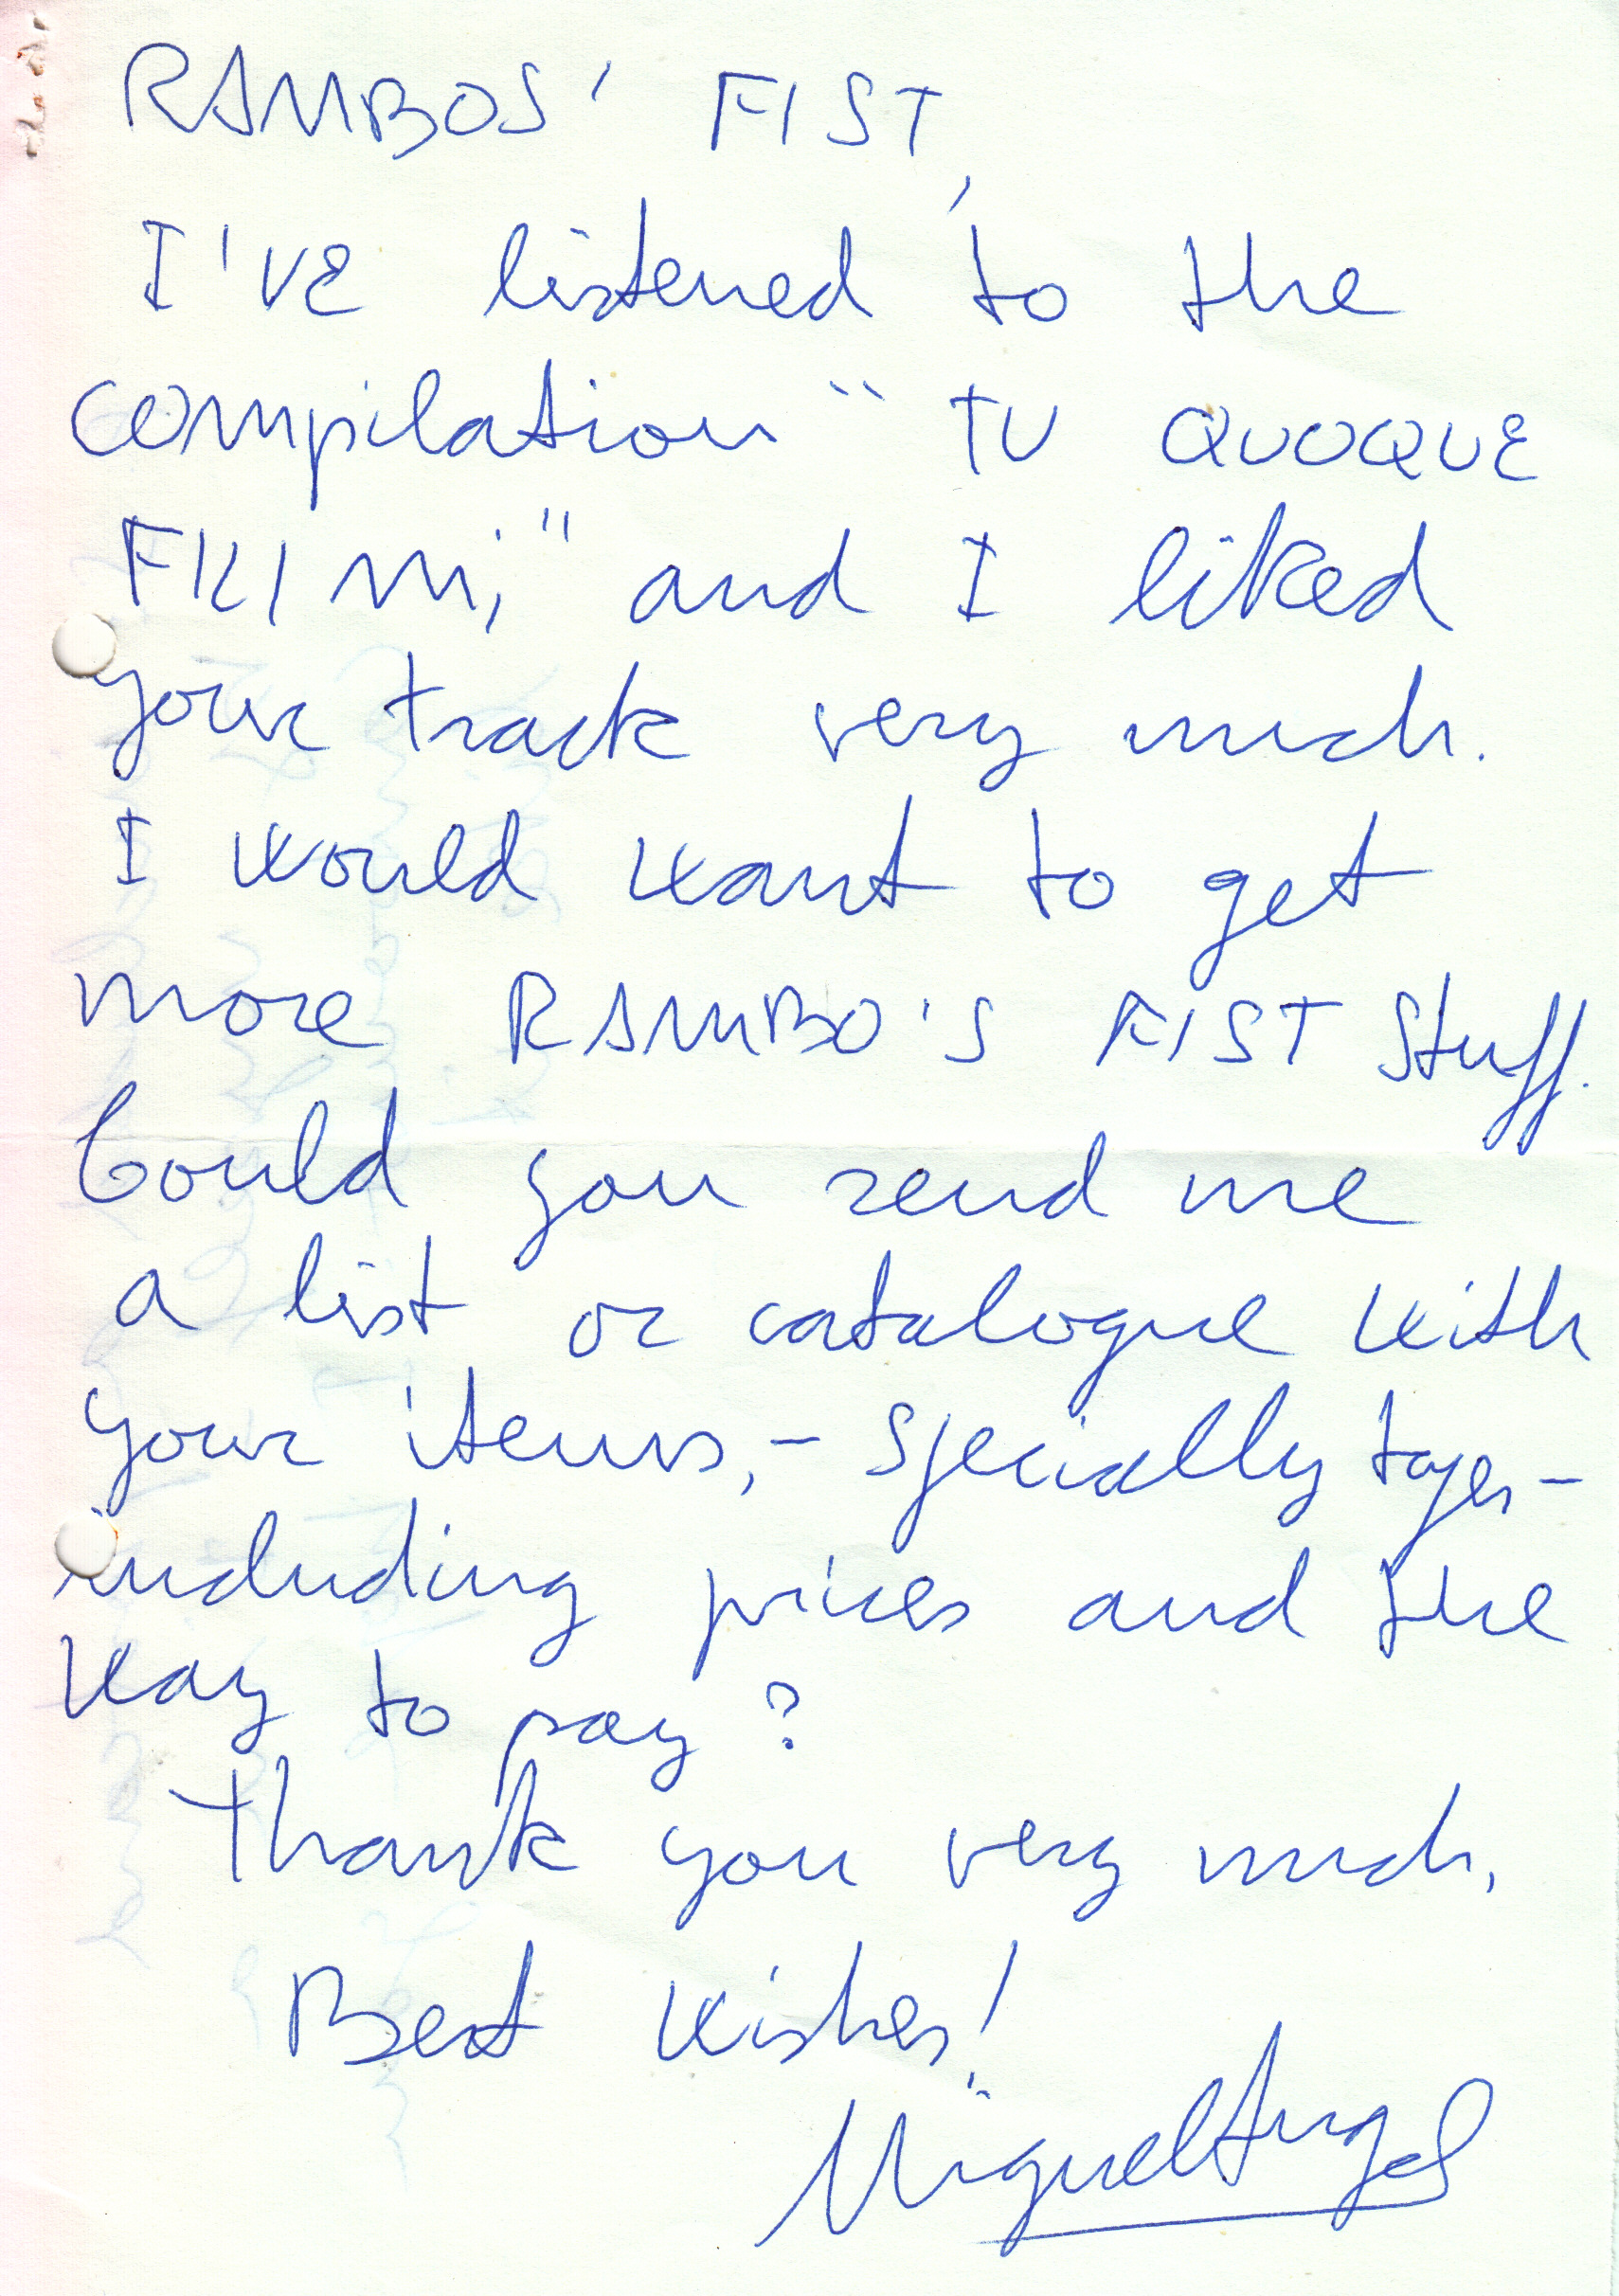 RAMBOS' FIST,
I'VE listened to the
compilation "TU QUOQUE
FILI mi," and I liked
your track very much.
I would want to get
more RAMBO'S FIST stuff.
Could you send me
a list or catalogue with
your items, - specially tapes -
including prices and the
way to pay?
Thank you very much,
Best wishes!
Miguel Angel